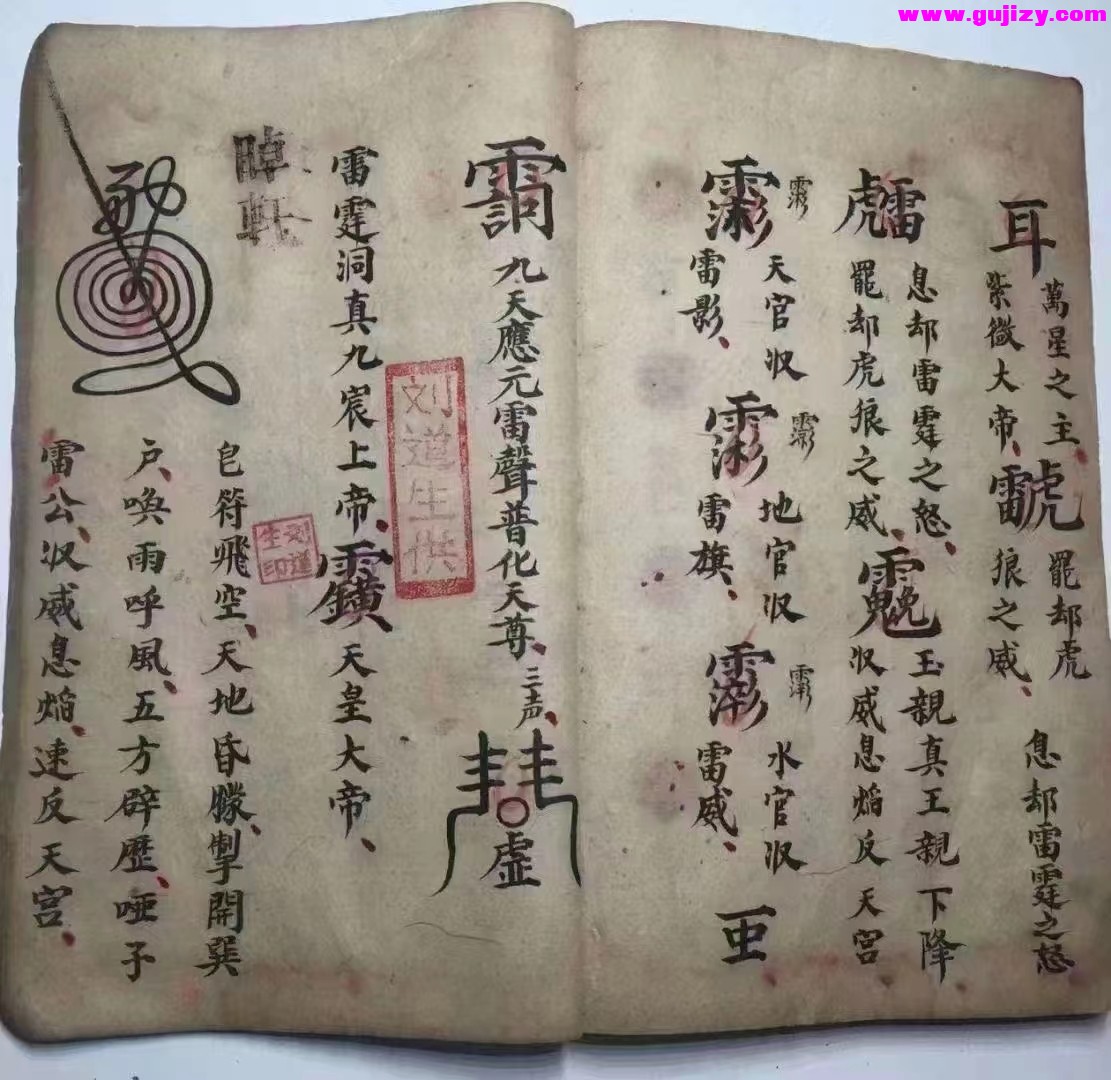 www.gujizy.com
耳
萬星之主、
紫微大帝、
罷却虎
狼之威、
息却雷霆之怒
息却雷霆之怒、
罷却虎狼之威、
玉親真王親下降、
収威息焰反天宮
天官収
雷影、
地官収
雷旗、
水官収
雷威、
九天應元雷聲普化天尊、三声、
虚
刘道生供
雷霆洞真九宸上帝、
天皇大帝、
刘道生印
皂符飛空、天地昏朦、掣開巽
户、喚雨呼風、五方辟歷、哑子
雷公、収威息焰、速反天宮、